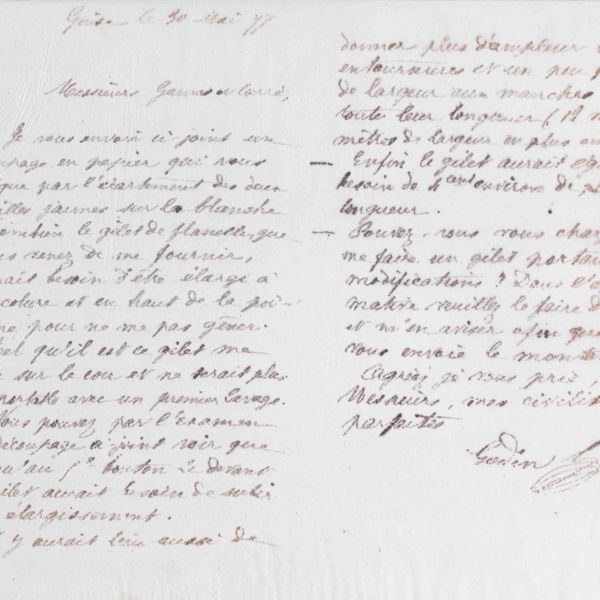 Guise Le 30 Mai 77
Messieurs
Je vous envoie ci-joint un
en papier que vous
par l'écartement des deux
jaunes sur la blanche
combien le gilet de flanelle, que
venez de me fournir,
besoin d'être élargi à
et en haut de la poi-
pour ne me pas gêner.
qu'il est ce gilet me
sur le cou et ne serait plus
avec un premier lavage.
Vous pouvez par l'examen
découpage ci joint voir que
bouton le devant
gilet aurait besoin de subir
élargissement.
y aurait lieu aussi de
donner plus d'ampleur
entournures et un peu
de largeur aux manches
toute leur longueur (12
mètres de largeur en plus
— Enfin le gilet aurait
besoin de 4 environs de
longueur.
— Pouvez-vous vous
me faire un gilet
modifications ? Dans
veuillez le faire
et m'en aviser afin que
vous envoie le
Agréez je vous prie,
Messieurs, mes
parfaites
Godin